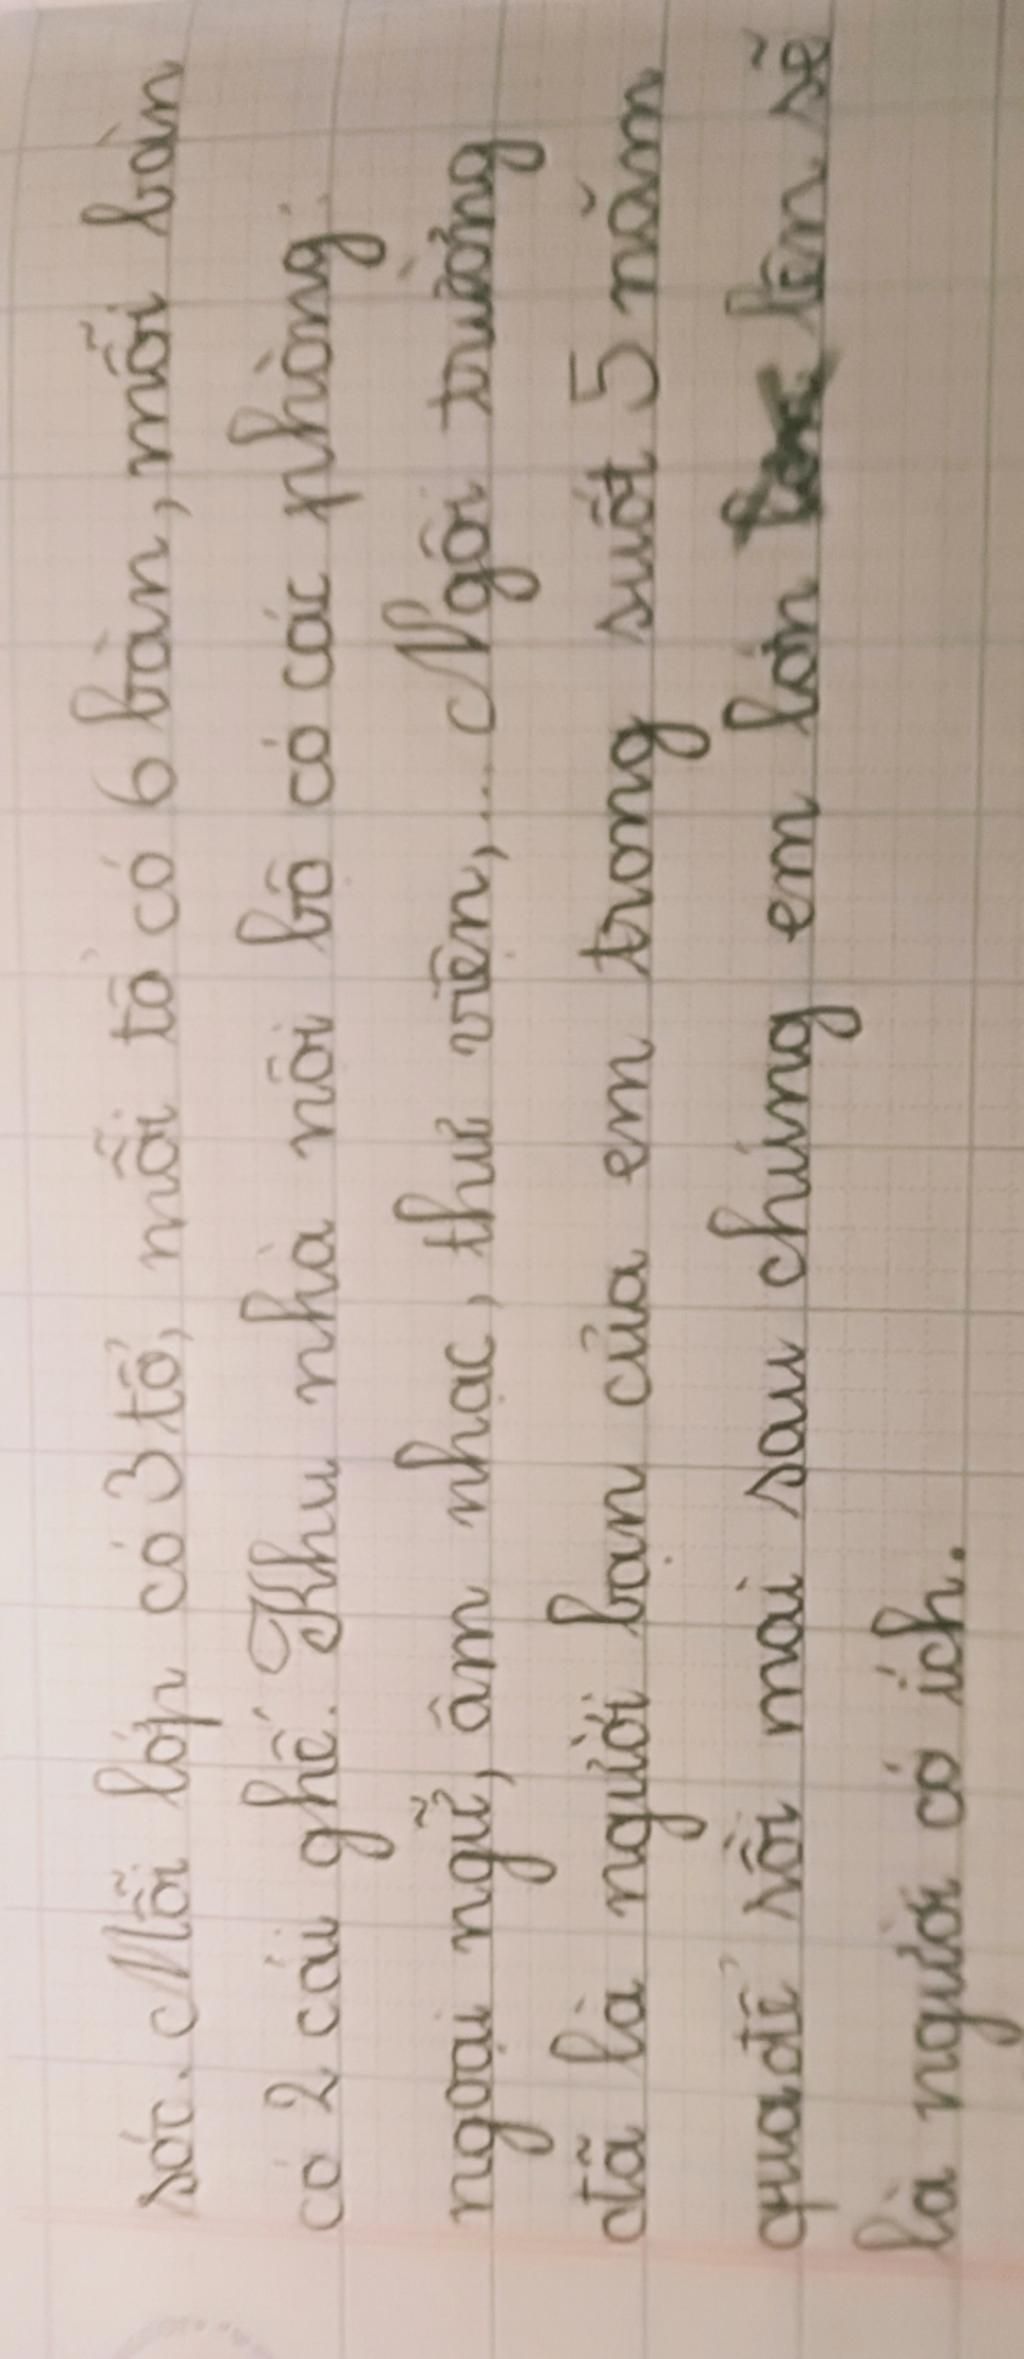 sóc. Mỗi lớp có 3 tổ, mỗi tổ có 6 bàn, mỗi bàn
có 2 cái ghế. Khu nhà nội bộ có các phòng:
ngoại ngữ, âm nhạc, thư viện,... Ngôi trường
đã là người bạn của em trong suốt 5 năm
qua để rồi mai sau chúng em lớn lên sẽ
là người có ích.